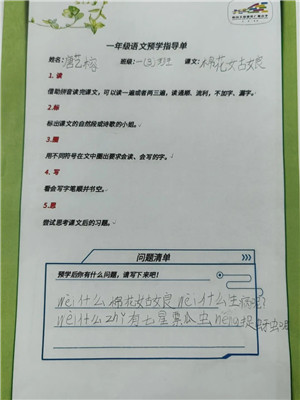 一年级语文预学指导单
姓名: 班级:一(3)班 课文:棉花姑娘
1. 读
借助拼音读完课文，可以读一遍或者两三遍，读通顺，流利，不加字、漏字。
2.标
标出课文的自然段或诗歌的小组。
3.圈
用不同符号在文中圈出要求会读、会写的字。
4. 写
看会写字笔顺并书空。
5.思
尝试思考课文后的习题。
问题清单
预学后你有什么问题，请写下来吧！
wèi什么棉花姑娘 wèi什么生病
wèi什么zhǐ有七星瓢虫 néng捉蚜虫呢